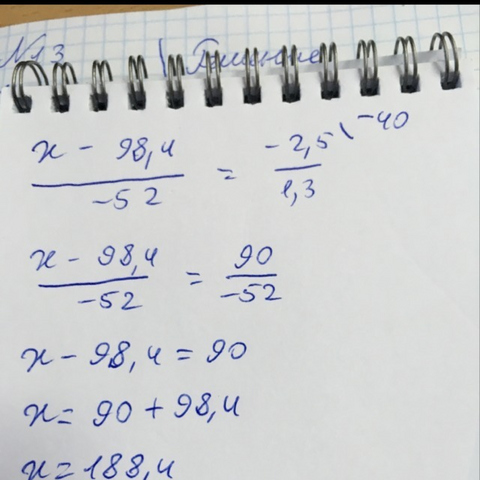 N13
x - 98,4 / -52 = -2,5 \ -40 / 1,3
x - 98,4 / -52 = 90 / -52
x - 98,4 = 90
x = 90 + 98,4
x = 188,4